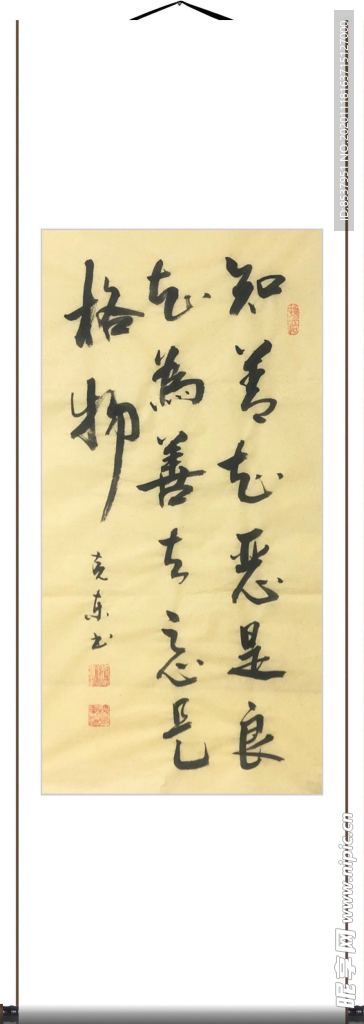 知善知恶是良
知为善去恶是
格物
克东书
ID:8537951 NO:20201111816371512700
昵享网 www.nipic.cn